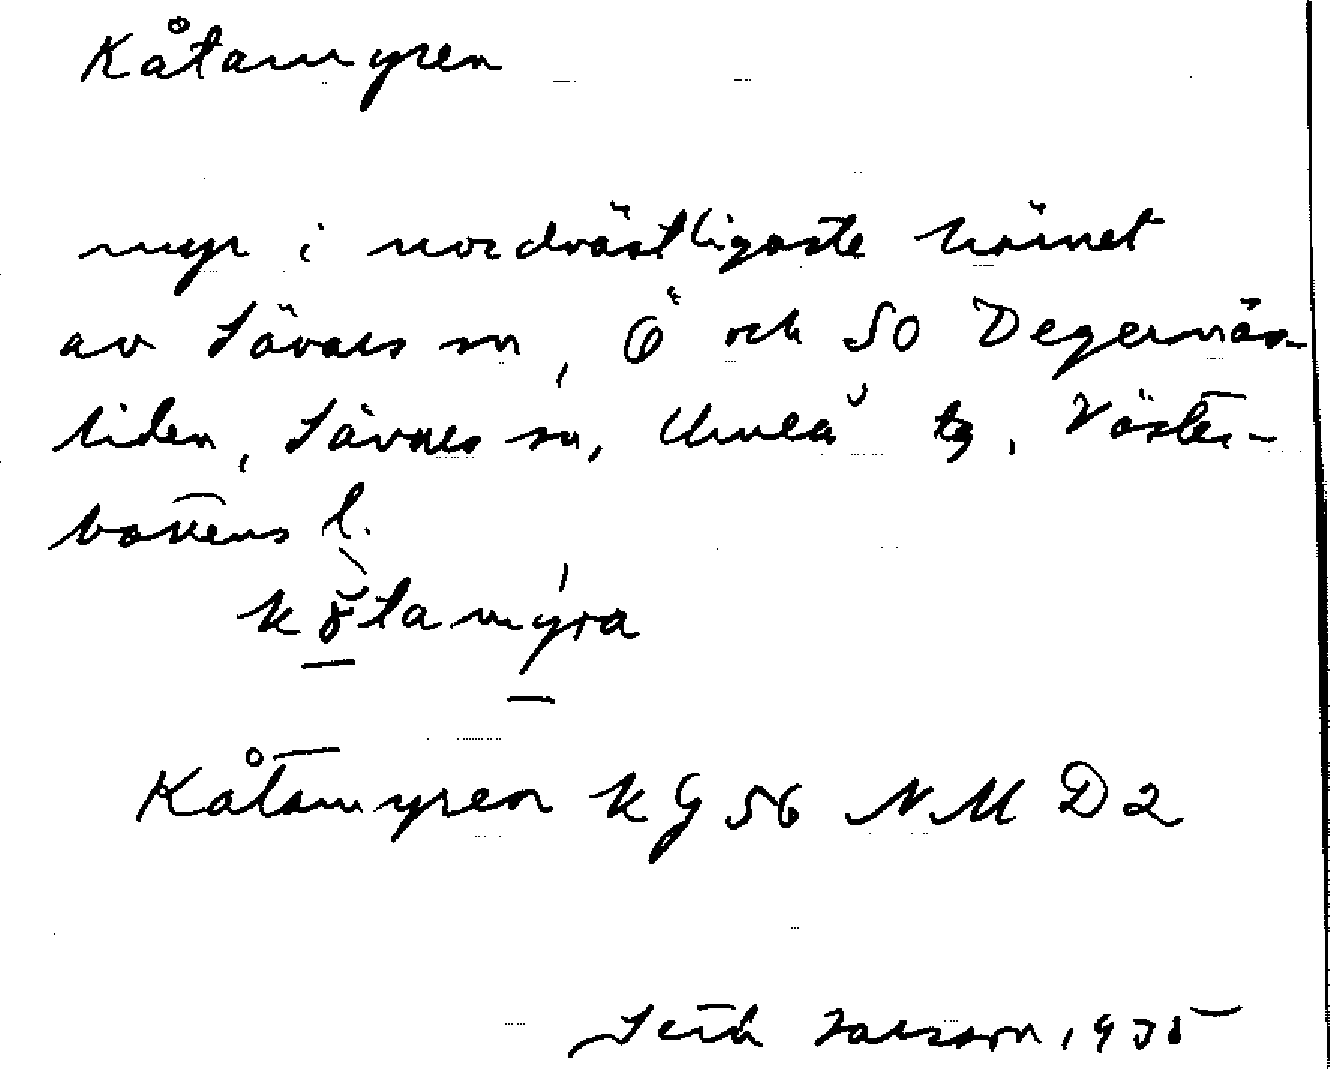 Kåtamyren
myr i nordvästligaste hörnet
av Sävars sn, Ö och SO Degernäs-
liden, Sävars sn, Umeå tg, Väster-
bottens l.
Kåtamyren KG 56 NM D2
1935